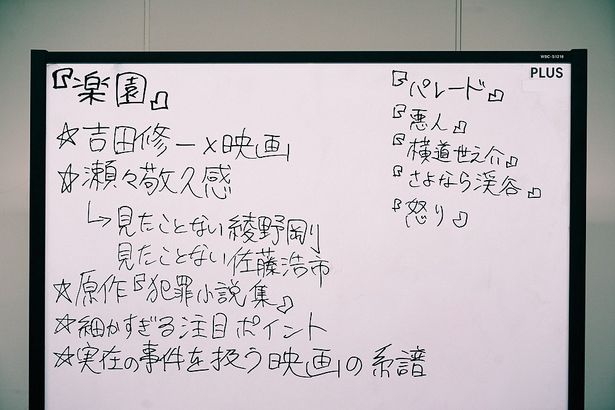 『楽園』
☆吉田修一×映画
☆瀬々敬久感
↳見たことない綾野剛
見たことない佐藤浩市
☆原作『犯罪小説集』
☆細かすぎる注目ポイント
☆実在の事件を扱う映画の系譜
WBC-S1218
PLUS
『パレード』
『悪人』
『横道世之介』
『さよなら渓谷』
『怒り』